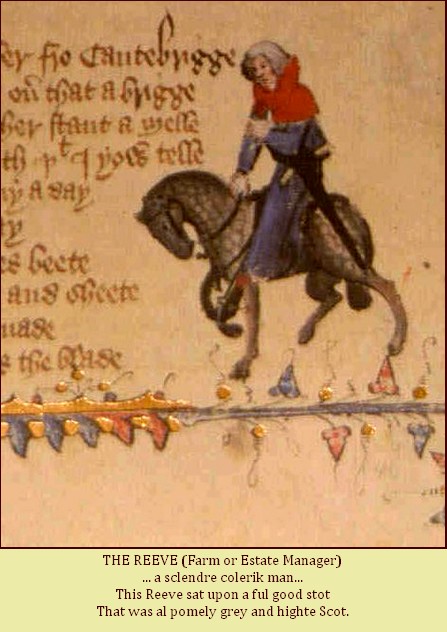 fro Cantebrigge
that a brigge
ther stant a melle
yow telle
ny a day
ty
es beete
and sheete
made
s the blade
THE REEVE (Farm or Estate Manager)
... a sclendre colerik man...
This Reeve sat upon a ful good stot
That was al pomely grey and highte Scot.